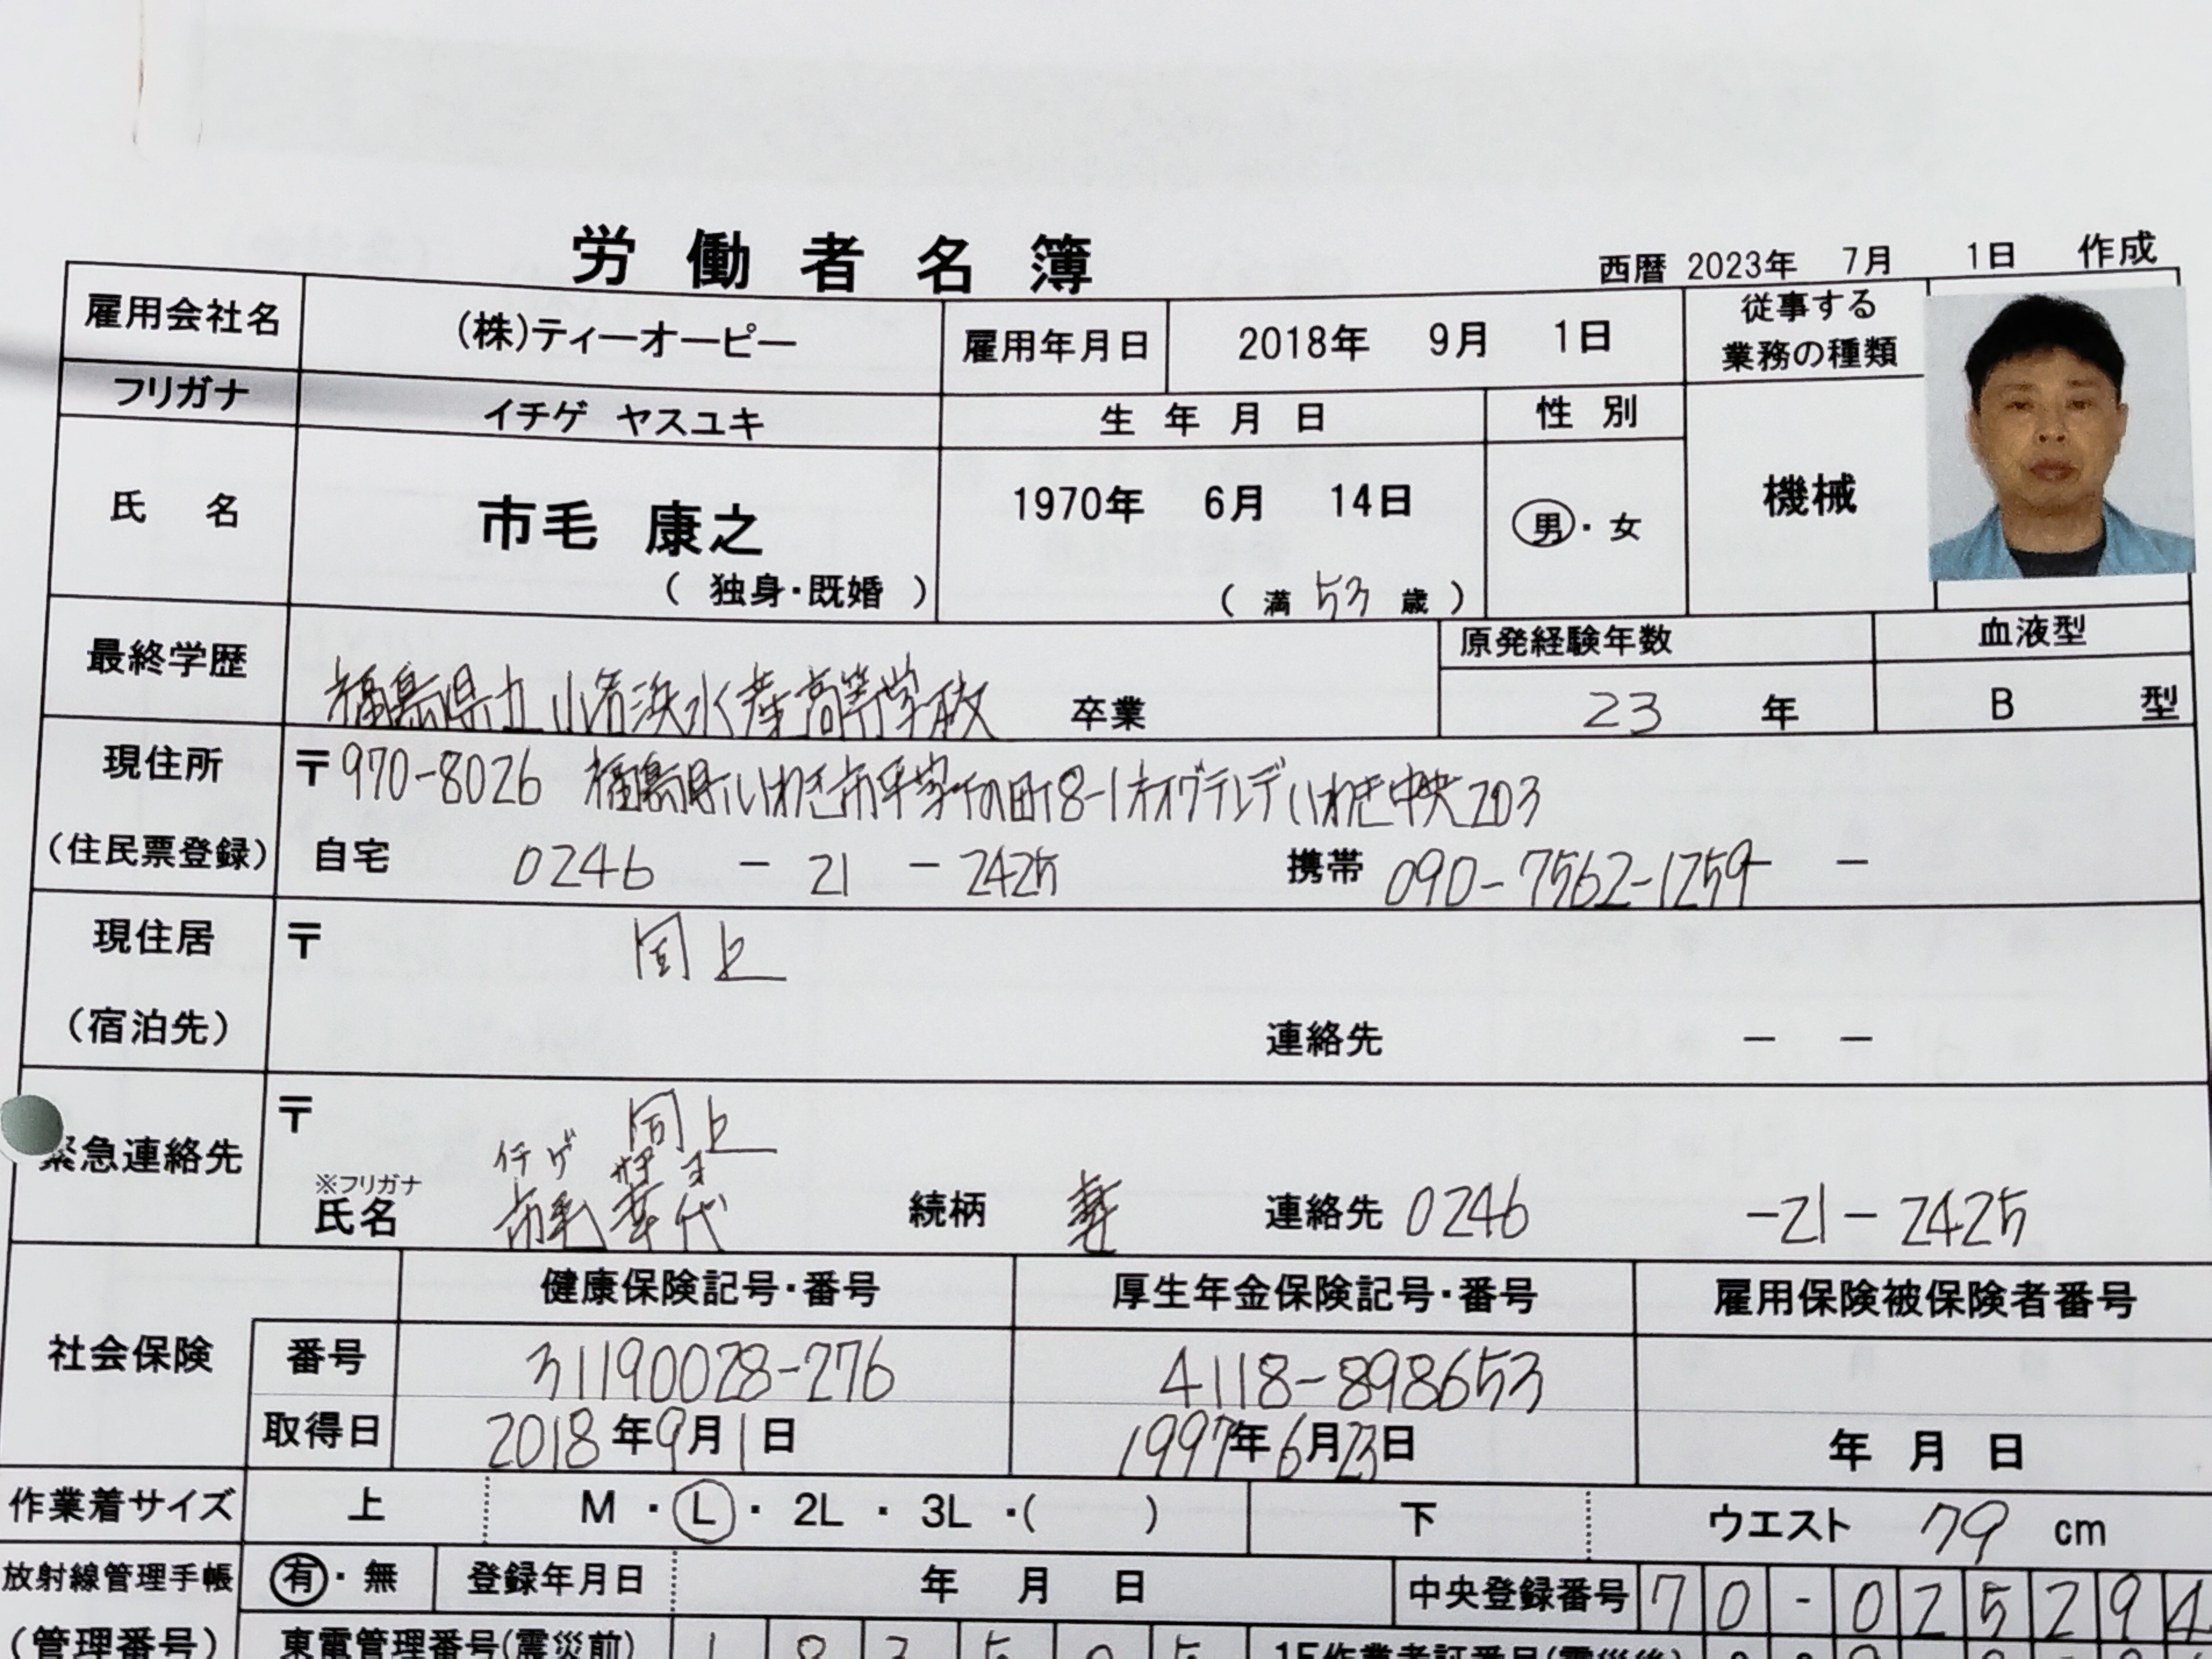 労働者名簿
西暦 2023年 7月 1日 作成
雇用会社名 (株)ティーオーピー 雇用年月日 2018年 9月 1日 従事する業務の種類
フリガナ イチゲ ヤスユキ 生年月日 性別
氏名 市毛 康之 1970年 6月 14日 男・女 機械
(独身・既婚) (満 53 歳)
最終学歴 福島県立小名浜水産高等学校 卒業 原発経験年数 血液型
23 年 B 型
現住所 〒970-8026 福島県いわき市平字 町8-1 いわき中央203
(住民票登録) 自宅 0246 - 21 - 2425 携帯 090-7562-1259- -
現住居 〒 同上
(宿泊先) 連絡先 - -
〒 同上
緊急連絡先 イチゲ
※フリガナ
氏名 市毛 代 続柄 妻 連絡先 0246 -21- 2425
健康保険記号・番号 厚生年金保険記号・番号 雇用保険被保険者番号
社会保険 番号 31190028-276 4118-898653
取得日 2018年9月1日 1997年6月23日 年 月 日
作業着サイズ 上 M・L・2L・3L・( ) 下 ウエスト 79 cm
放射線管理手帳 有・無 登録年月日 年 月 日 中央登録番号 70-025294
(管理番号) 東電管理番号(震災前) 1F作業者証番号(震災後)